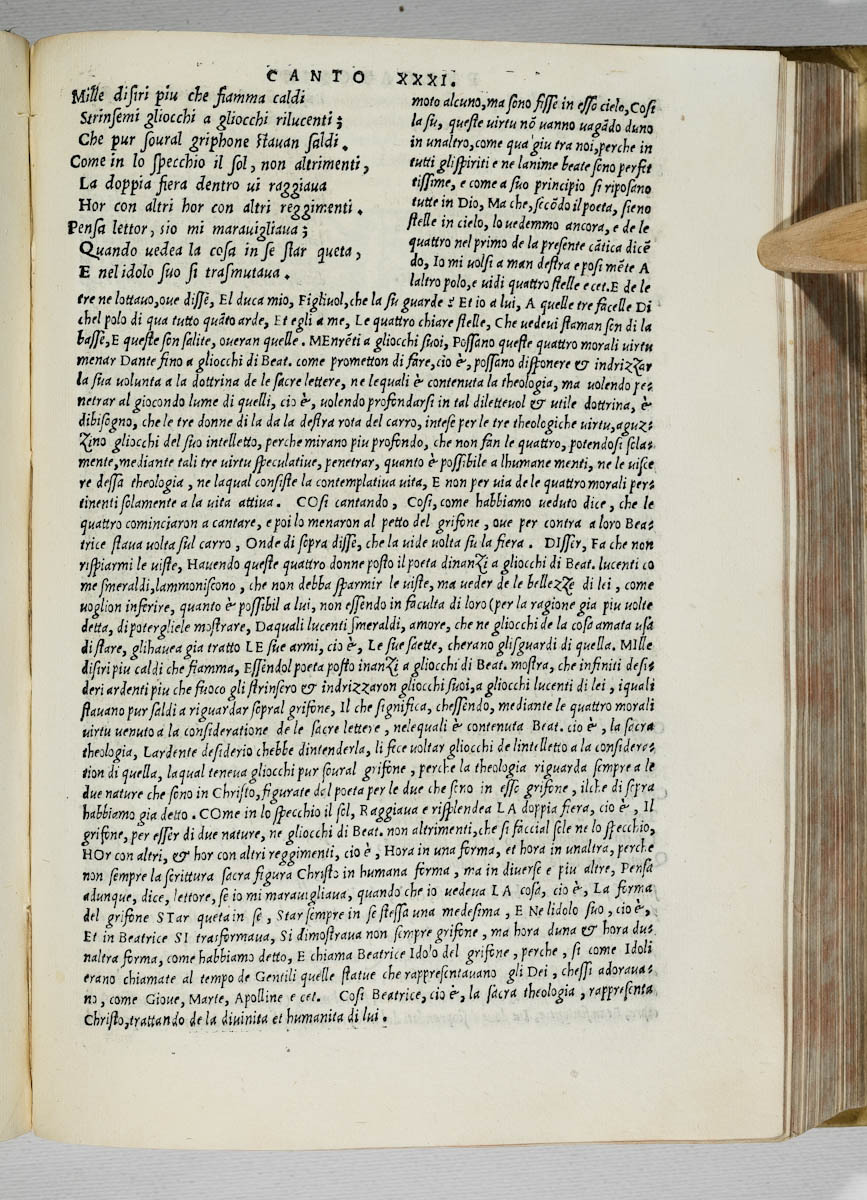 CANTO XXXI.
Mille disiri piu che fiamma caldi
Strinsemi gliocchi a gliocchi rilucenti;
Che pur soural griphone stauan saldi.
Come in lo specchio il sol, non altrimenti,
La doppia fiera dentro ui raggiaua
Hor con altri hor con altri reggimenti.
Pensa lettor, sio mi marauigliaua;
Quando uedea la cosa in se star queta,
E nel idolo suo si trasmutaua.
moto alcuno, ma sono fisse in esso cielo, Cosi
la su, queste uirtu nō uanno uagādo duno
in unaltro, come qua giu tra noi, perche in
tutti glispiriti e ne lanime beate sono perfet
tissime, e come a suo principio si riposano
tutte in Dio, Ma che, secōdo il poeta, sieno
stelle in cielo, lo uedemmo ancora, e de le
quattro nel primo de la presente cātica dicē
do, Io mi uolsi a man destra e posi mēte A
laltro polo, e uidi quattro stelle e cet. E de le
tre ne lottauo, oue disse, El duca mio, Figliuol, che la su guarde? Et io a lui, A quelle tre facelle Di
chel polo di qua tutto quāto arde, Et egli a me, Le quattro chiare stelle, Che uedeui staman son di la
basse, E queste son salite, oueran quelle. MEnrēti a gliocchi suoi, Possano queste quattro morali uirtu
menar Dante fino a gliocchi di Beat. come prometton di fare, cio è, possano disponere & indrizzar
la sua uolunta a la dottrina de le sacre lettere, ne lequali è contenuta la theologia, ma uolendo pe-
netrar al giocondo lume di quelli, cio è, uolendo profondarsi in tal diletteuol & utile dottrina, è
dibisogno, che le tre donne di la da la destra rota del carro, intese per le tre theologiche uirtu, aguz-
zino gliocchi del suo intelletto, perche mirano piu profondo, che non fan le quattro, potendosi sola-
mente, mediante tali tre uirtu speculatiue, penetrar, quanto è possibile a lhumane menti, ne le uisce
re dessa theologia, ne laqual consiste la contemplatiua uita, E non per uia de le quattro morali per-
tinenti solamente a la uita attiua. COsi cantando, Cosi, come habbiamo ueduto dice, che le
quattro cominciaron a cantare, e poi lo menaron al petto del grifone, oue per contra a loro Bea-
trice staua uolta sul carro, Onde di sopra disse, che la uide uolta su la fiera. DISser, Fa che non
rispiarmi le uiste, Hauendo queste quattro donne posto il poeta dinanzi a gliocchi di Beat. lucenti co
me smeraldi, lammoniscono, che non debba sparmir le uiste, ma ueder de le bellezze di lei, come
uoglion inferire, quanto è possibil a lui, non essendo in faculta di loro (per la ragione gia piu uolte
detta, di potergliele mostrare, Daquali lucenti smeraldi, amore, che ne gliocchi de la cosa amata usa
di stare, glihauea gia tratto LE sue armi, cio è, Le sue saette, cherano glisguardi di quella. MIlle
disiri piu caldi che fiamma, Essendol poeta posto inanzi a gliocchi di Beat. mostra, che infiniti desi-
deri ardenti piu che fuoco gli strinsero & indrizzaron gliocchi suoi, a gliocchi lucenti di lei, iquali
stauano pur saldi a riguardar sopral grifone, Il che significa, chessendo, mediante le quattro morali
uirtu uenuto a la consideratione de le sacre lettere, nelequali è contenuta Beat. cio è, la sacra
theologia, Lardente desiderio chebbe dintenderla, li fece uoltar gliocchi de lintelletto a la considera-
tion di quella, laqual teneua gliocchi pur soural grifone, perche la theologia riguarda sempre a le
due nature che sono in Christo, figurate dal poeta per le due che sono in esso grifone, ilche di sopra
habbiamo gia detto. COme in lo specchio il sol, Raggiaua e risplendea LA doppia fiera, cio è, Il
grifone, per esser di due nature, ne gliocchi di Beat. non altrimenti, che si faccial sole ne lo specchio,
HOr con altri, & hor con altri reggimenti, cio è, Hora in una forma, et hora in unaltra, perche
non sempre la scrittura sacra figura Christo in humana forma, ma in diuerse e piu altre, Pensa
adunque, dice, lettore, se io mi marauigliaua, quando che io uedeua LA cosa, cio è, La forma
del grifone STar queta in se, Star sempre in se stessa una medesima, E NE lidolo suo, cio è,
Et in Beatrice SI trasformaua, Si dimostraua non sempre grifone, ma hora duna & hora du-
naltra forma, come habbiamo detto, E chiama Beatrice Idolo del grifone, perche, si come Idoli
erano chiamate al tempo de Gentili quelle statue che rappresentauano gli Dei, chessi adoraua-
no, come Gioue, Marte, Apolline e cet. Cosi Beatrice, cio è, la sacra theologia, rappresenta
Christo, trattando de la diuinita et humanita di lui.